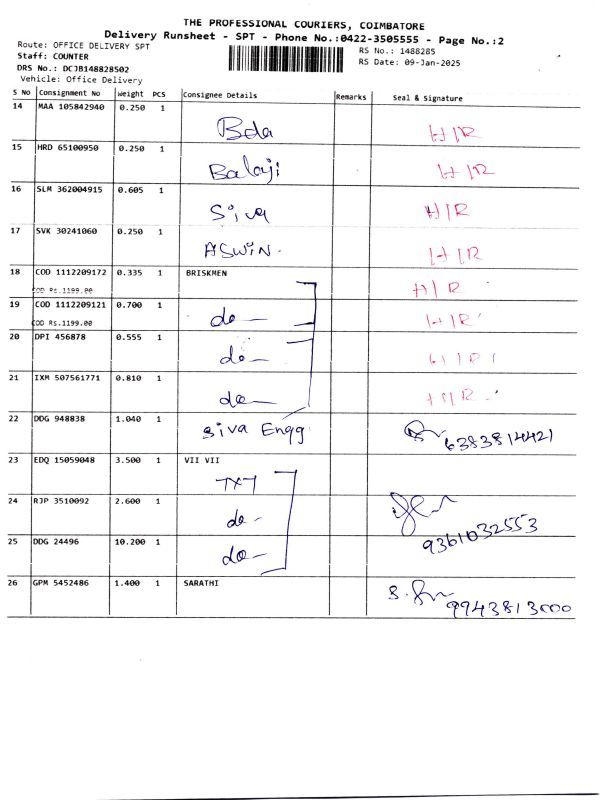 THE PROFESSIONAL COURIERS, COIMBATORE
Delivery Runsheet - SPT - Phone No.:0422-3505555 - Page No.:2
Route: OFFICE DELIVERY SPT
RS No.: 1488285
Staff: COUNTER
RS Date: 09-Jan-2025
DRS No.: DCJB148828502
Vehicle: Office Delivery
S No Consignment No Weight PCS Consignee Details Remarks Seal & Signature
14 MAA 105842940 0.250 1 Bda H/R
15 HRD 65100950 0.250 1 Balaji H/R
16 SLM 362004915 0.605 1 Siva H/R
17 SVK 30241060 0.250 1 ASWIN. H/R
18 COD 1112209172 0.335 1 BRISKMEN H/R
COD Rs.1199.00
19 COD 1112209121 0.700 1 do— H/R
COD Rs.1199.00
20 DPI 456878 0.555 1 do— H/R
21 IXM 507561771 0.810 1 do— H/R
22 DDG 948838 1.040 1 Siva Engg 6383814421
23 EDQ 15059048 3.500 1 VII VII
TXT
24 RJP 3510092 2.600 1 do- 9361032553
25 DDG 24496 10.200 1 do—
26 GPM 5452486 1.400 1 SARATHI 9943813000